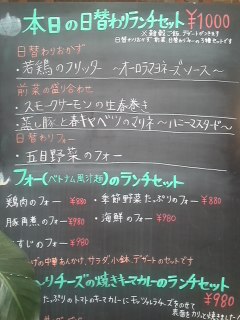 本日の日替わりランチセット ¥1000
※雑穀ご飯、デザートがつきます
日替わりおかず、前菜、日替わりフォーの3種セットです
日替わりおかず
・若鶏のフリッター 〜オーロラマヨネーズソース〜
前菜の盛り合わせ
・スモークサーモンの生春巻き
・蒸し豚と春キャベツのマリネ 〜ハニーマスタード〜
日替わりフォー
・五目野菜のフォー
フォー(ベトナム風汁麺)のランチセット
鶏肉のフォー ¥880 ・季節野菜たっぷりのフォー ¥880
豚角煮のフォー ¥980 ・海鮮のフォー ¥980
すじのフォー ¥980
げの中華あんかけ、サラダ、小鉢、デザートのセットです
チーズの焼きキーマカレーのランチセット
たっぷりのトマトのキーマカレーにモッツァレラチーズをのせて ¥980
表面をカリッと焼きました
デザートのセットです